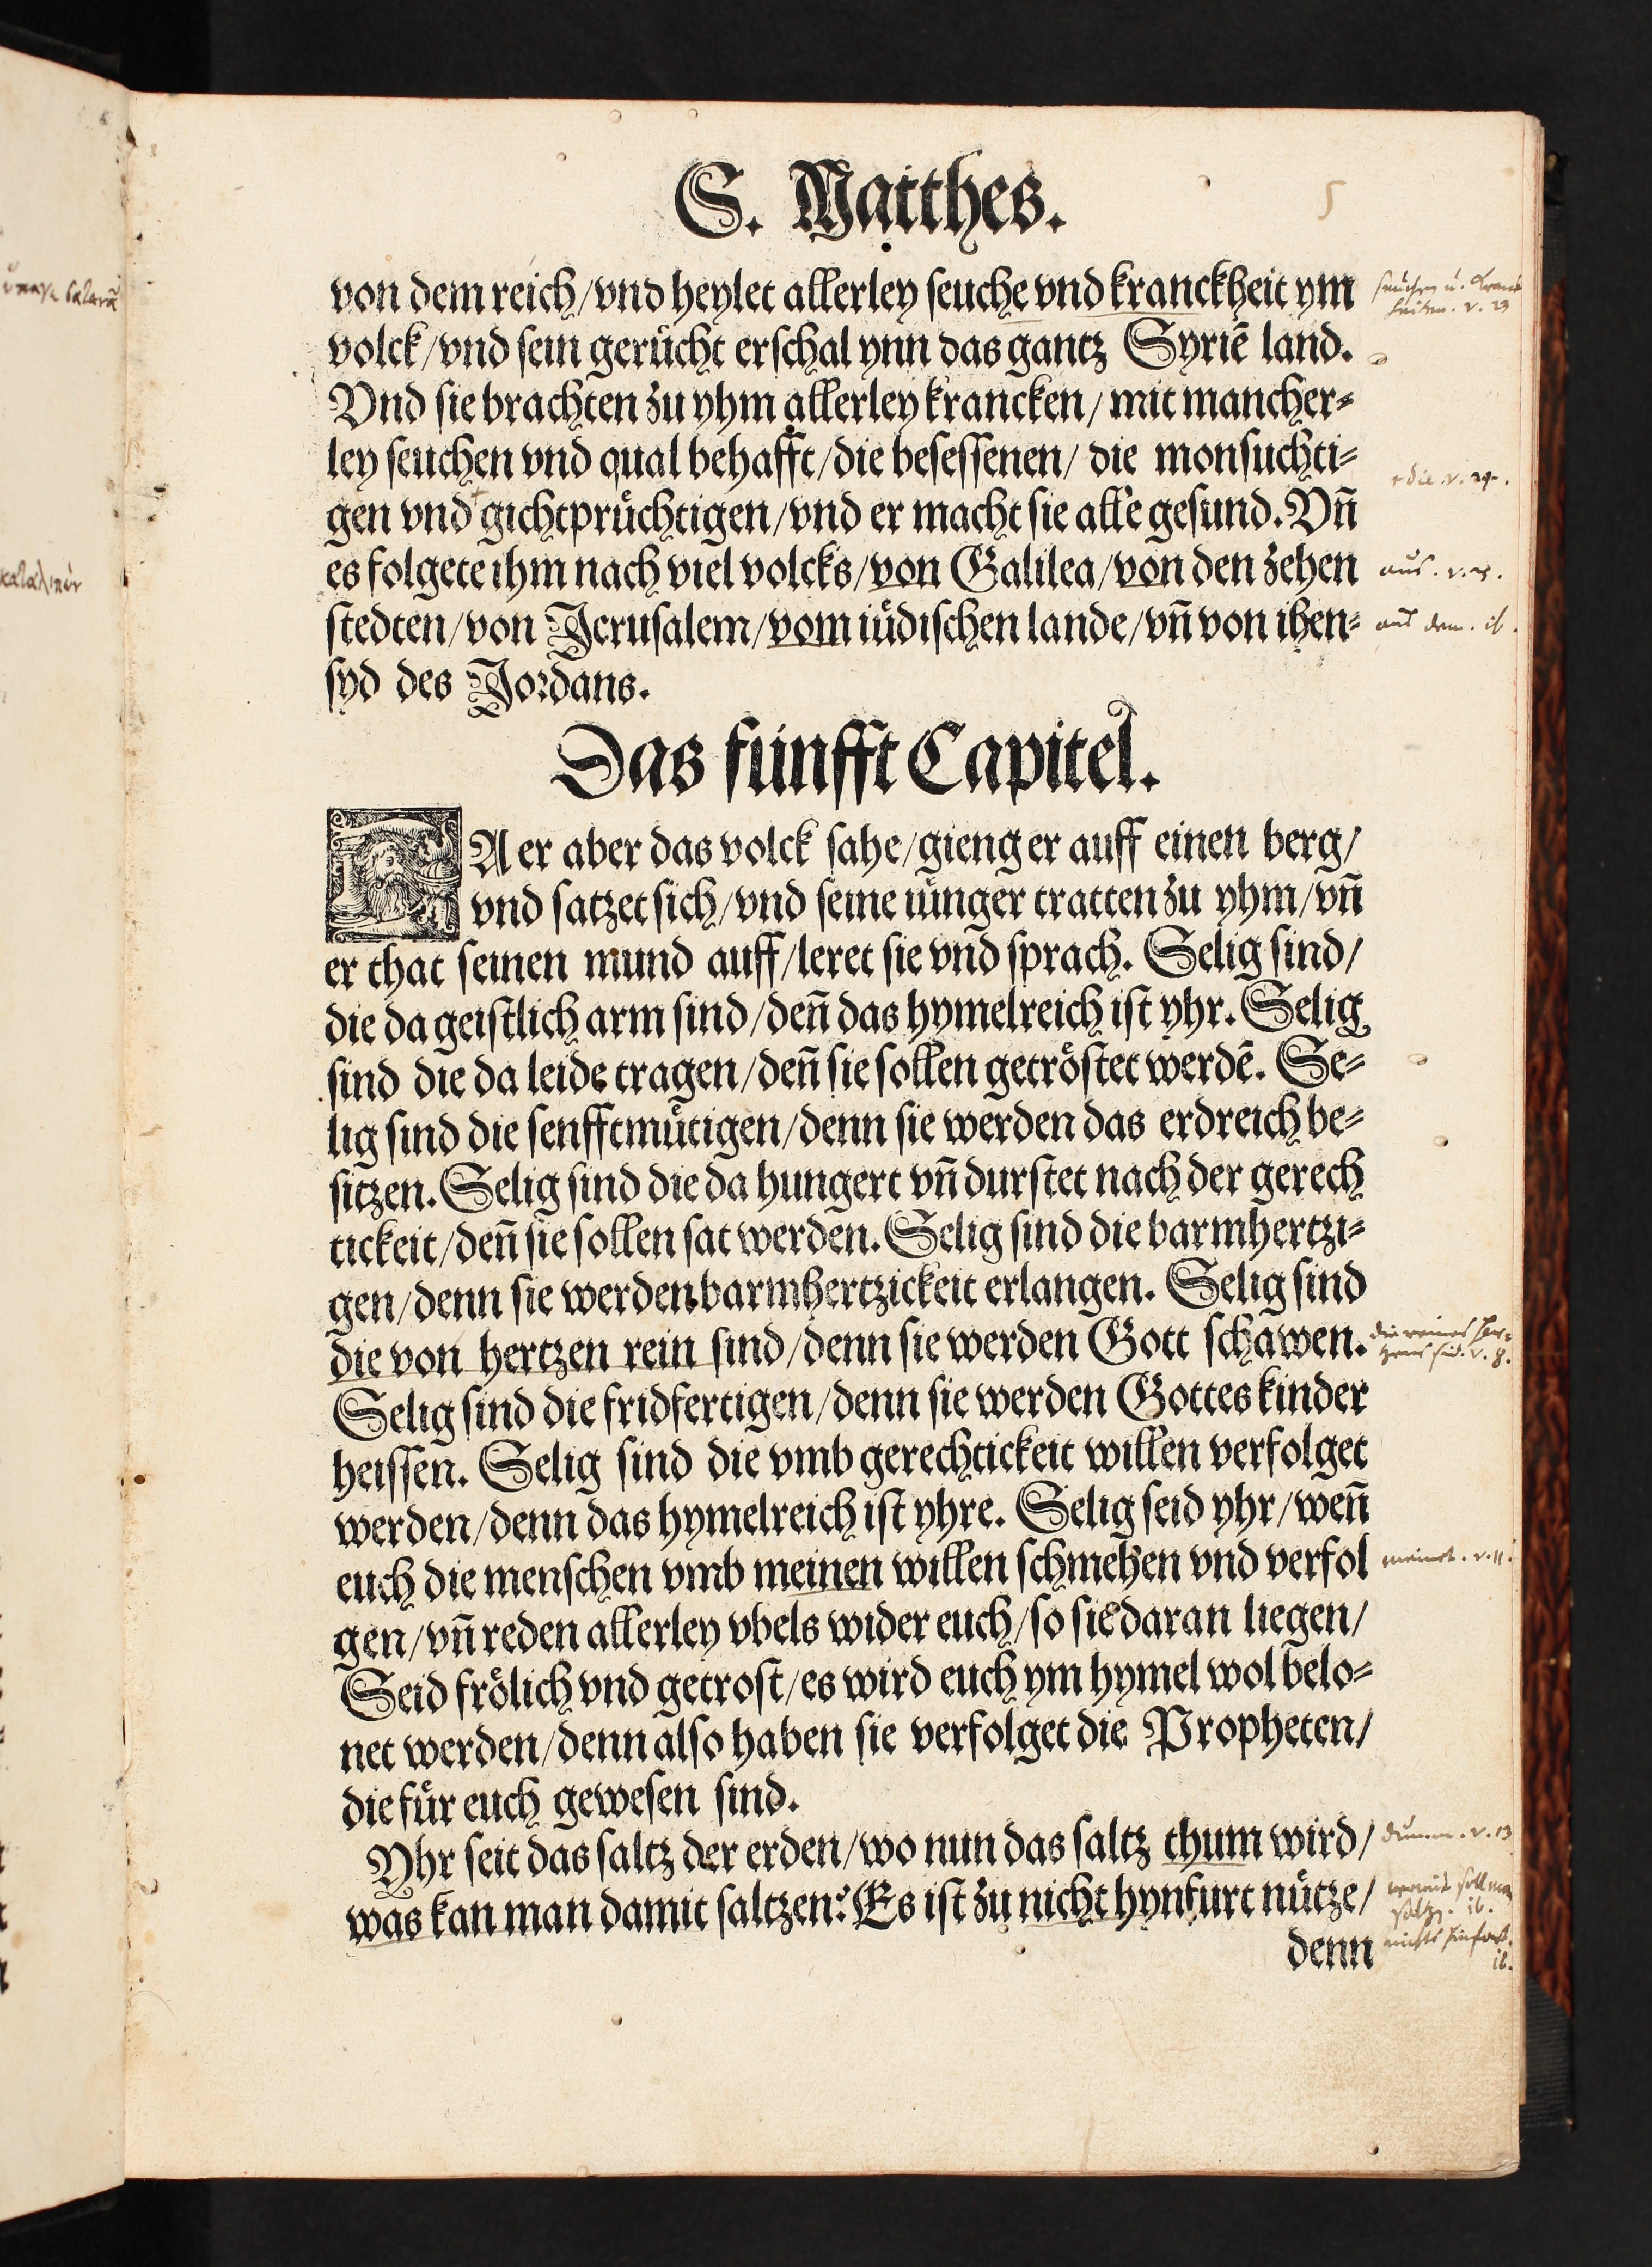 S. Matthes.
5
von dem reich/vnd heylet allerley seuche vnd kranckheit ym
volck/vnd sein gerücht erschal ynn das gantz Syriē land.
Vnd sie brachten zu yhm allerley krancken/ mit mancher⸗
ley seuchen vnd qual behafft/die besessenen/ die monsuchti⸗
gen vnd gichtprüchtigen/vnd er macht sie alle gesund. Vñ
es folgete ihm nach viel volcks/von Galilea/von den zehen
stedten/von Jerusalem/vom iüdischen lande/vñ von ihen⸗
syd des Jordans.
Das fünfft Capitel.
DA er aber das volck sahe/gieng er auff einen berg/
vnd satzet sich/vnd seine iünger tratten zu yhm/vñ
er that seinen mund auff/leret sie vnd sprach. Selig sind/
die da geistlich arm sind/deñ das hymelreich ist yhr. Selig
sind die da leide tragen/deñ sie sollen getröstet werdē. Se⸗
lig sind die senfftmütigen/denn sie werden das erdreich be⸗
sitzen. Selig sind die da hungert vñ durstet nach der gerech
tickeit/deñ sie sollen sat werden. Selig sind die barmhertzi⸗
gen/denn sie werden barmhertzickeit erlangen. Selig sind
die von hertzen rein sind/denn sie werden Gott schawen.
Selig sind die fridfertigen/denn sie werden Gottes kinder
heissen. Selig sind die vmb gerechtickeit willen verfolget
werden/denn das hymelreich ist yhre. Selig seid yhr/weñ
euch die menschen vmb meinen willen schmehen vnd verfol
gen/vñ reden allerley vbels wider euch/so sie daran liegen/
Seid frölich vnd getrost/es wird euch ym hymel wol belo⸗
net werden/denn also haben sie verfolget die Propheten/
die für euch gewesen sind.
Yhr seit das saltz der erden/wo nun das saltz thum wird/
was kan man damit saltzen? Es ist zu nicht hynfurt nütze/
denn
die. v. 24.
aus. v. 25.
aus dem. ib.
die reines Her⸗
zens sind. v. 8.
meinet. v. 11.
dumm. v. 13
womit soll man
salzen. ib.
nichts hinfort.
ib.